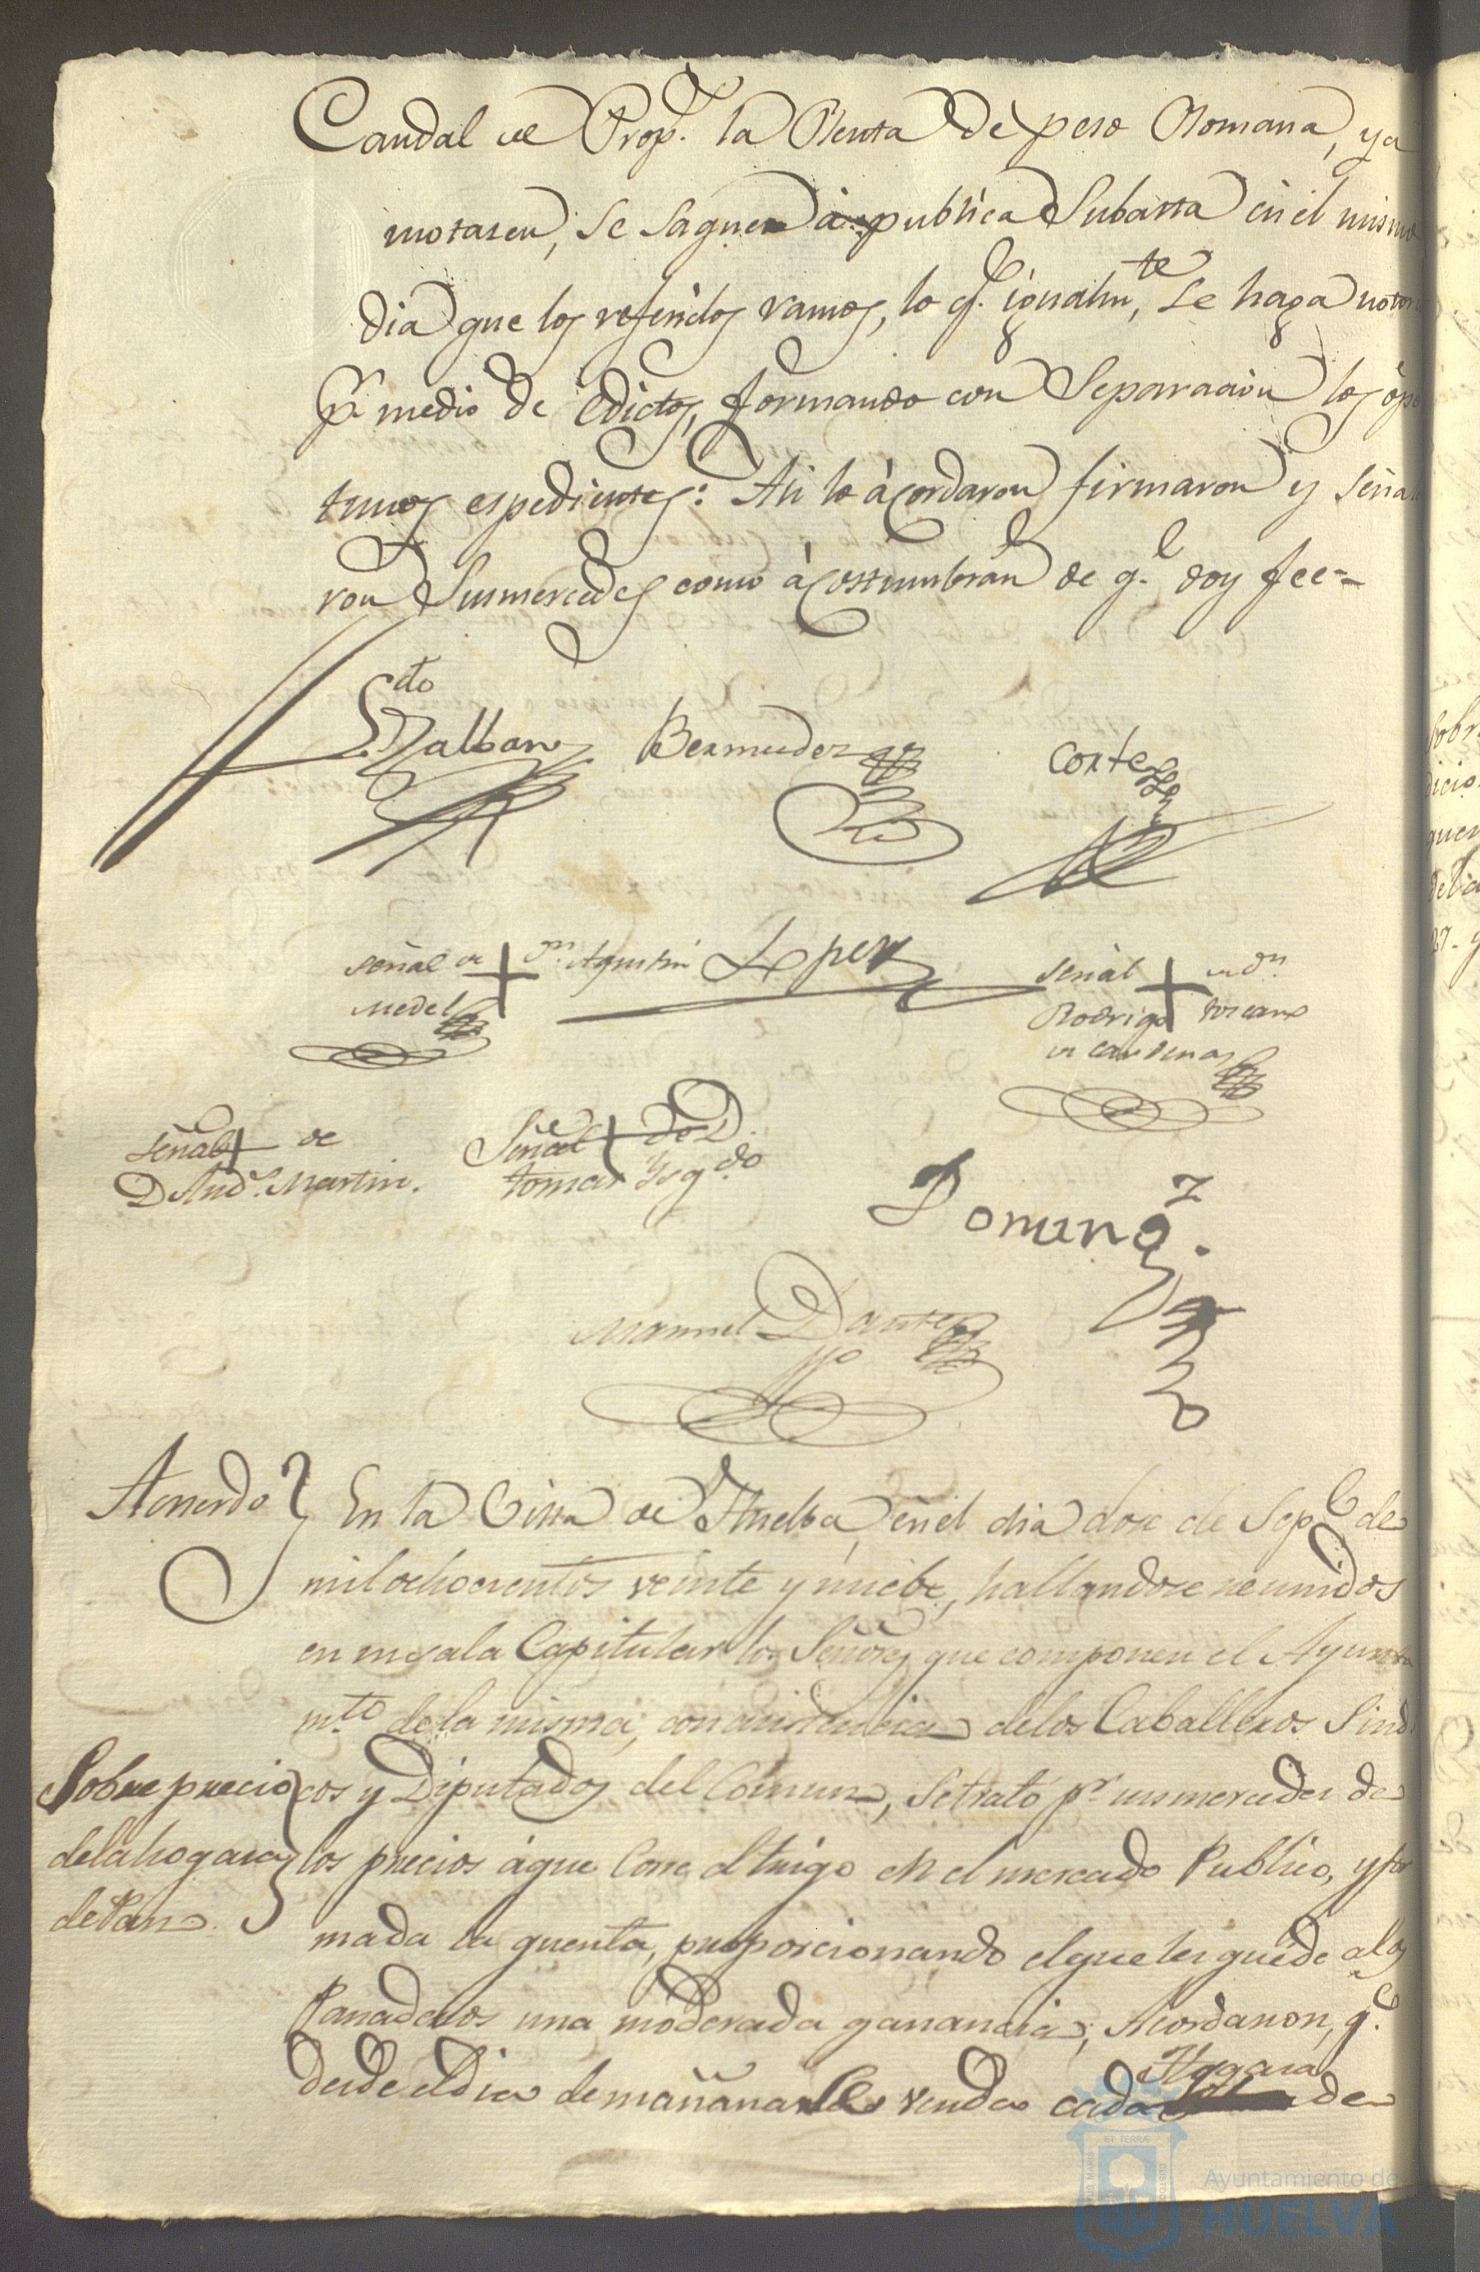 Caudal de Prop.s la Renta de peso Romana, y a
motasen, se saquen à publica Subasta en el mismo
dia que los referidos ramos, lo q.e igualm.te se haga notor
p.r medio de Edictos, formando con Separacion los opor
tunos espedientes: Asi lo àcordaron firmaron y señala
ron Sus mercedes como àcostumbran de q.e doy fee=
Bermudez Cortes
señal de + D.n Agustin
Medel
Lopez
señal + de D.n
Rodrigo Toscano
de Cardenas
señal + de
D. And.s Martin.
Señal + de D.
Tomas Yzq.do
Doming.z
Manuel Dantes
Acuerdo En la Villa de Huelba, en el dia dose de Sep.e de
mil ochocientos veinte y nuebe, hallandose reunidos
en su sala Capitular los Señores que componen el Ayunta
m.to de la misma, con asistencia de los Caballeros Sindi
Sobre precio
de la hogasa
de Pan.
cos y Diputados del Comun, se trató p.r sus mercedes de
los precios á que corre el trigo en el mercado Publico, y for
mada la quenta, proporcionando el que les quede a los
Panaderos una moderada ganancia, Acordaron, q.e
desde el dia de mañana se venda cada Hogasa de
Ayuntamiento de
HUELVA